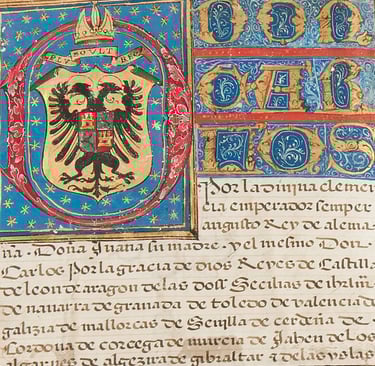 DON
CAR
LOS
Por la diuina clemen
cia emperador semper
augusto Rey de alema
ña · Doña Juana su madre · y el mesmo Don
Carlos Por la gracia de dios Reyes de Castill
de leon de aragon de las dos Secilias de ihrlm
de nauarra de granada de toledo de valencia d
galizia de mallorcas de Seuilla de cerdeña de
Cordoua de corcega de murcia de Jahen de los
algarues de algezira de gibraltar & de las yslas